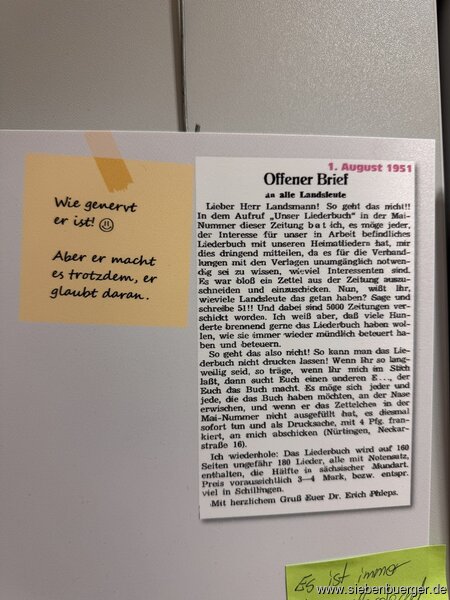 Wie genervt
er ist! ☺
Aber er macht
es trotzdem, er
glaubt daran.
1. August 1951
Offener Brief
an alle Landsleute
Lieber Herr Landsmann! So geht das nicht!!
In dem Aufruf „Unser Liederbuch" in der Mai-
Nummer dieser Zeitung bat ich, es möge jeder,
der Interesse für unser in Arbeit befindliches
Liederbuch mit unseren Heimatliedern hat, mir
dies dringend mitteilen, da es für die Verhand-
lungen mit den Verlagen unumgänglich notwen-
dig sei zu wissen, wieviel Interessenten sind.
Es war bloß ein Zettel aus der Zeitung auszu-
schneiden und einzuschicken. Nun, wißt Ihr,
wieviele Landsleute das getan haben? Sage und
schreibe 51!! Und dabei sind 5000 Zeitungen ver-
schickt worden. Ich weiß aber, daß viele Hun-
derte brennend gerne das Liederbuch haben wol-
len, wie sie immer wieder mündlich beteuert ha-
ben und beteuern.
So geht das also nicht! So kann man das Lie-
derbuch nicht drucken lassen! Wenn Ihr so lang-
weilig seid, so träge, wenn Ihr mich im Stich
laßt, dann sucht Euch einen anderen E..., der
Euch das Buch macht. Es möge sich jeder und
jede, die das Buch haben möchten, an der Nase
erwischen, und wenn er das Zettelchen in der
Mai-Nummer nicht ausgefüllt hat, es diesmal
sofort tun und als Drucksache, mit 4 Pfg. fran-
kiert, an mich abschicken (Nürtingen, Neckar-
straße 16).
Ich wiederhole: Das Liederbuch wird auf 160
Seiten ungefähr 180 Lieder, alle mit Notensatz,
enthalten, die Hälfte in sächsischer Mundart.
Preis voraussichtlich 3—4 Mark, bezw. entspr.
viel in Schillingen.
Mit herzlichem Gruß Euer Dr. Erich Phleps.
Es ist immer
www.siebenbuerger.de